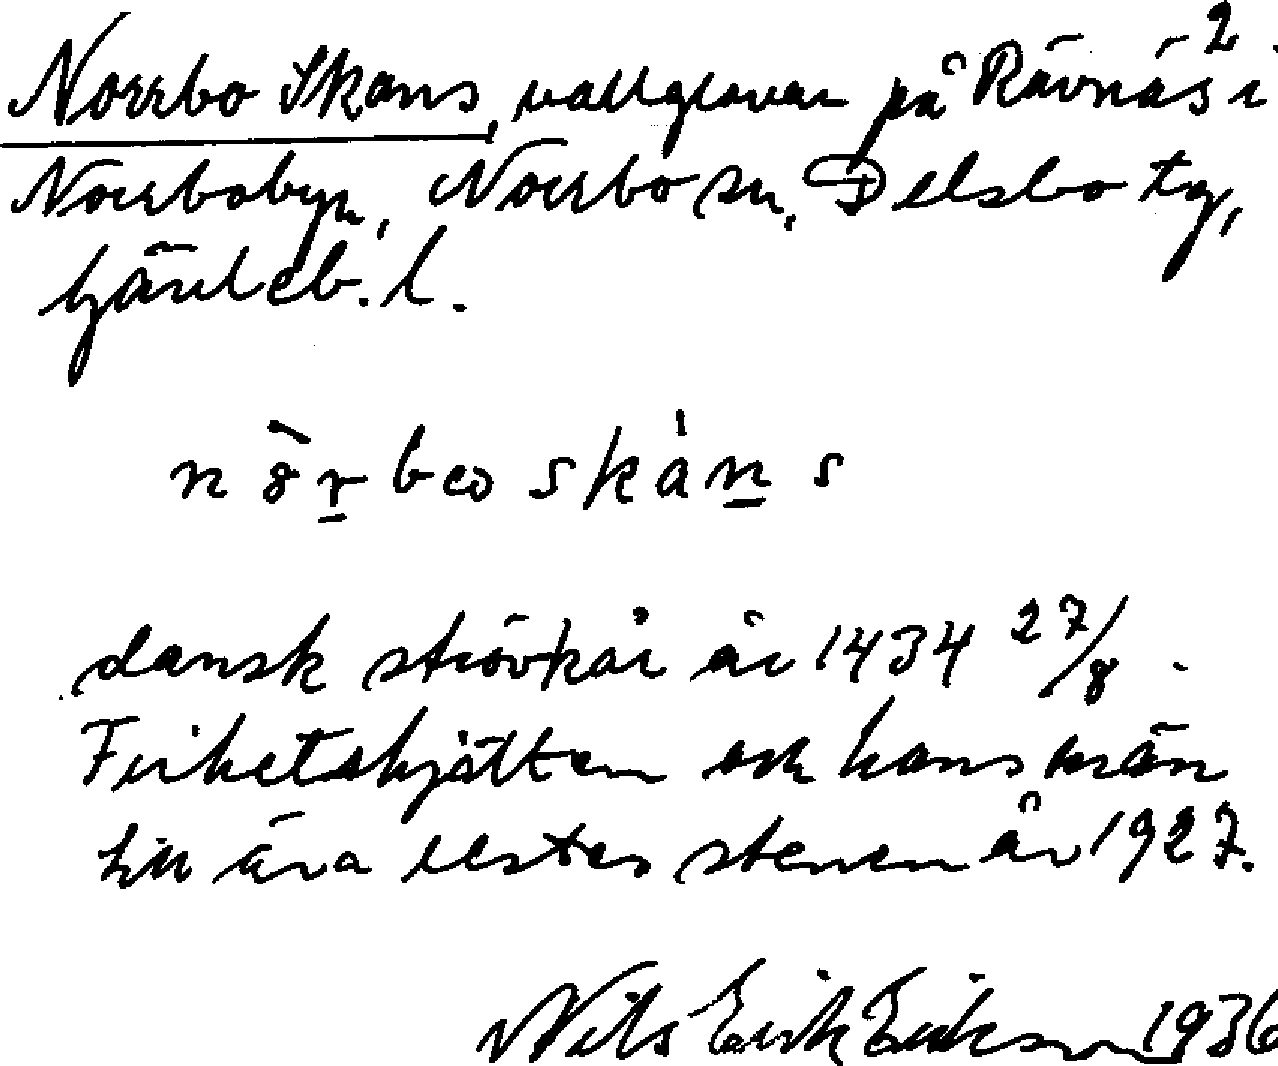 Norrbo Skans, vallgravar på Rävnäs² i
Norrbobyn, Norrbo sn, Delsbo tg,
Gävleb. l.
nò̱rbeo skáns
dansk strövkår år 1434 27/8 -
Frihetshjälten och hans män
till ära restes stenen år 1927.
Nils Erik Eriksson 1936